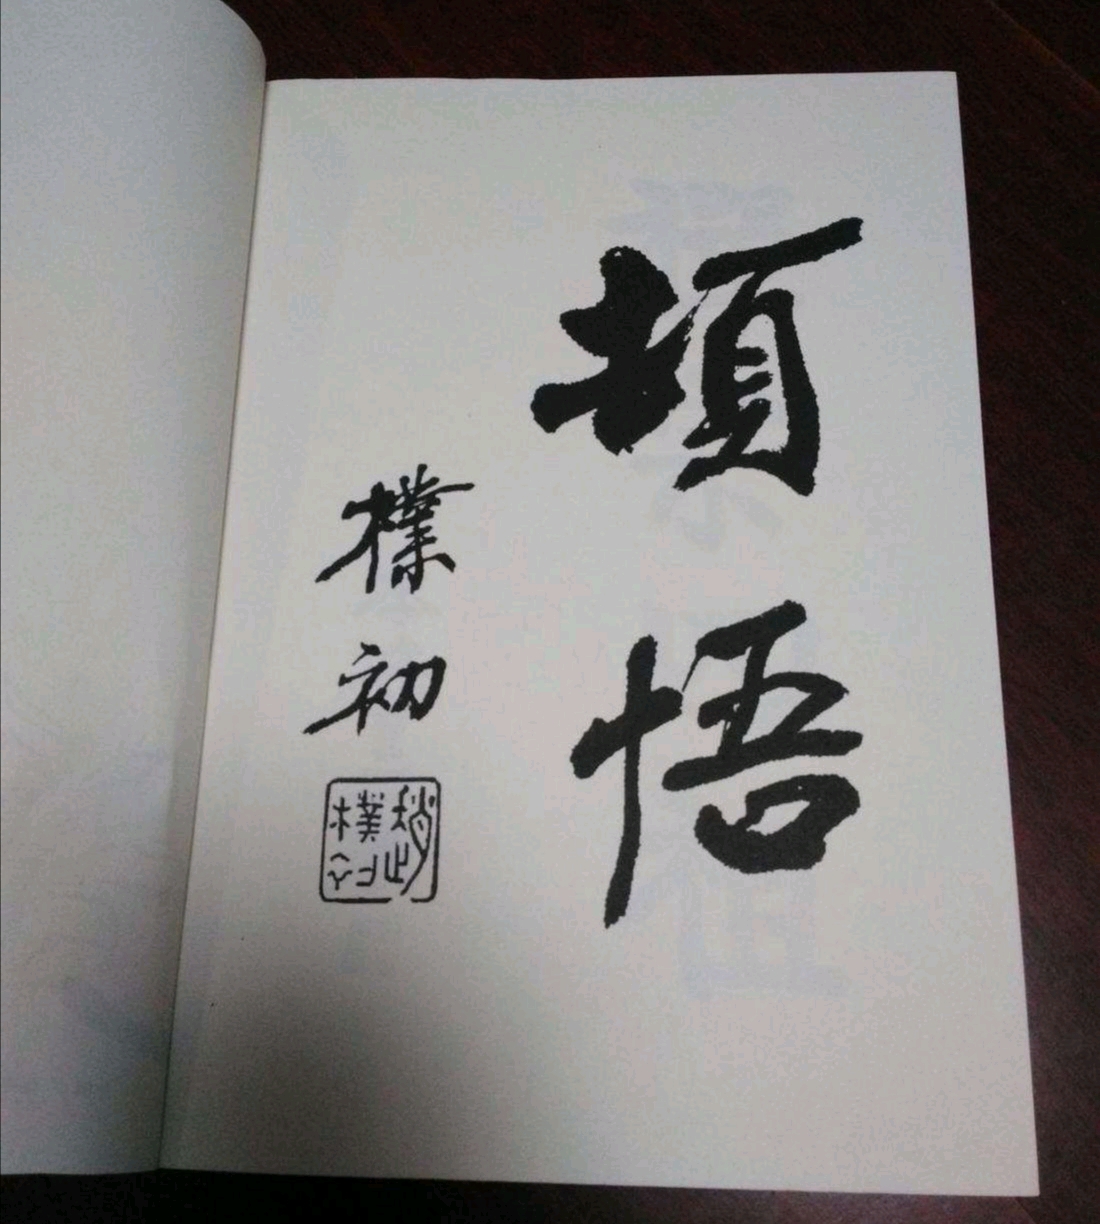 頓悟
樸初
趙樸初